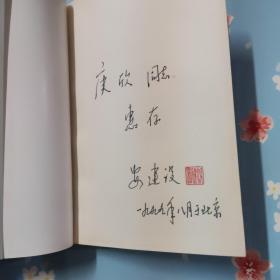 庚欣 同志
惠存
安建设
一九九九年八月于北京